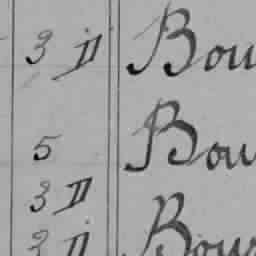 3 II Bou
5 Bou
3 II
3 II Bou